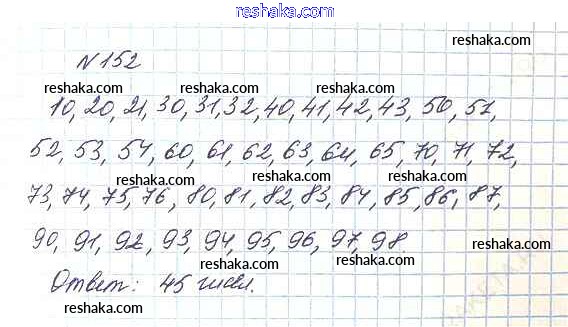 reshaka.com
N 152
reshaka.com
reshaka.com
reshaka.com reshaka.com reshaka.com
10, 20, 21, 30, 31, 32, 40, 41, 42, 43, 50, 51,
52, 53, 54, 60, 61, 62, 63, 64, 65, 70, 71, 72,
reshaka.com reshaka.com
73, 74, 75, 76, 80, 81, 82, 83, 84, 85, 86, 87,
reshaka.com reshaka.com
90, 91, 92, 93, 94, 95, 96, 97, 98
reshaka.com reshaka.com
Ответ: 45 чисел.
reshaka.com